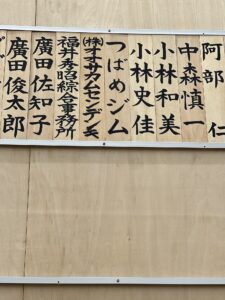 阿部仁
中森慎一
小林和美
小林史佳
つばめジム
㈱オオサカムセンデン㐂
福井秀昭綜合事務所
廣田佐知子
廣田俊太郎